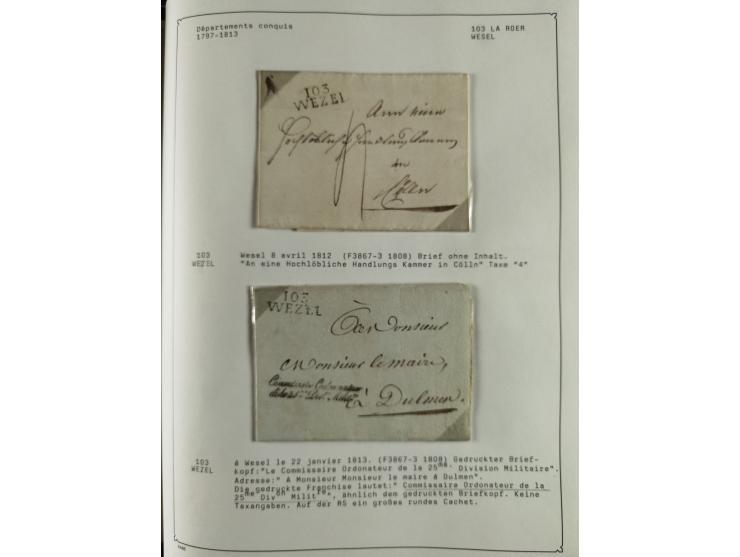 Départements conquis
1797-1813
103 LA ROER
WESEL
103
WEZEL
Ann eine
Hochlöbliche Handlungs Kammer
in
Cölln
103
WEZEL
Wesel 8 avril 1812 (F3867-3 1808) Brief ohne Inhalt.
"An eine Hochlöbliche Handlungs Kammer in Cölln" Taxe "4"
103
WEZEL
À Monsieur
Monsieur le maire,
Commissaire Ordonnateur
de la 25me Divon Militre
à Dulmen.
103
WEZEL
à Wesel le 22 janvier 1813. (F3867-3 1808) Gedruckter Brief-
kopf:"Le Commissaire Ordonateur de la 25me. Division Militaire".
Adresse:" A Monsieur Monsieur le maire à Dulmen".
Die gedruckte Franchise lautet:" Commissaire Ordonateur de la
25me Divon Militre", ähnlich dem gedruckten Briefkopf. Keine
Taxangaben. Auf der RS ein großes rundes Cachet.